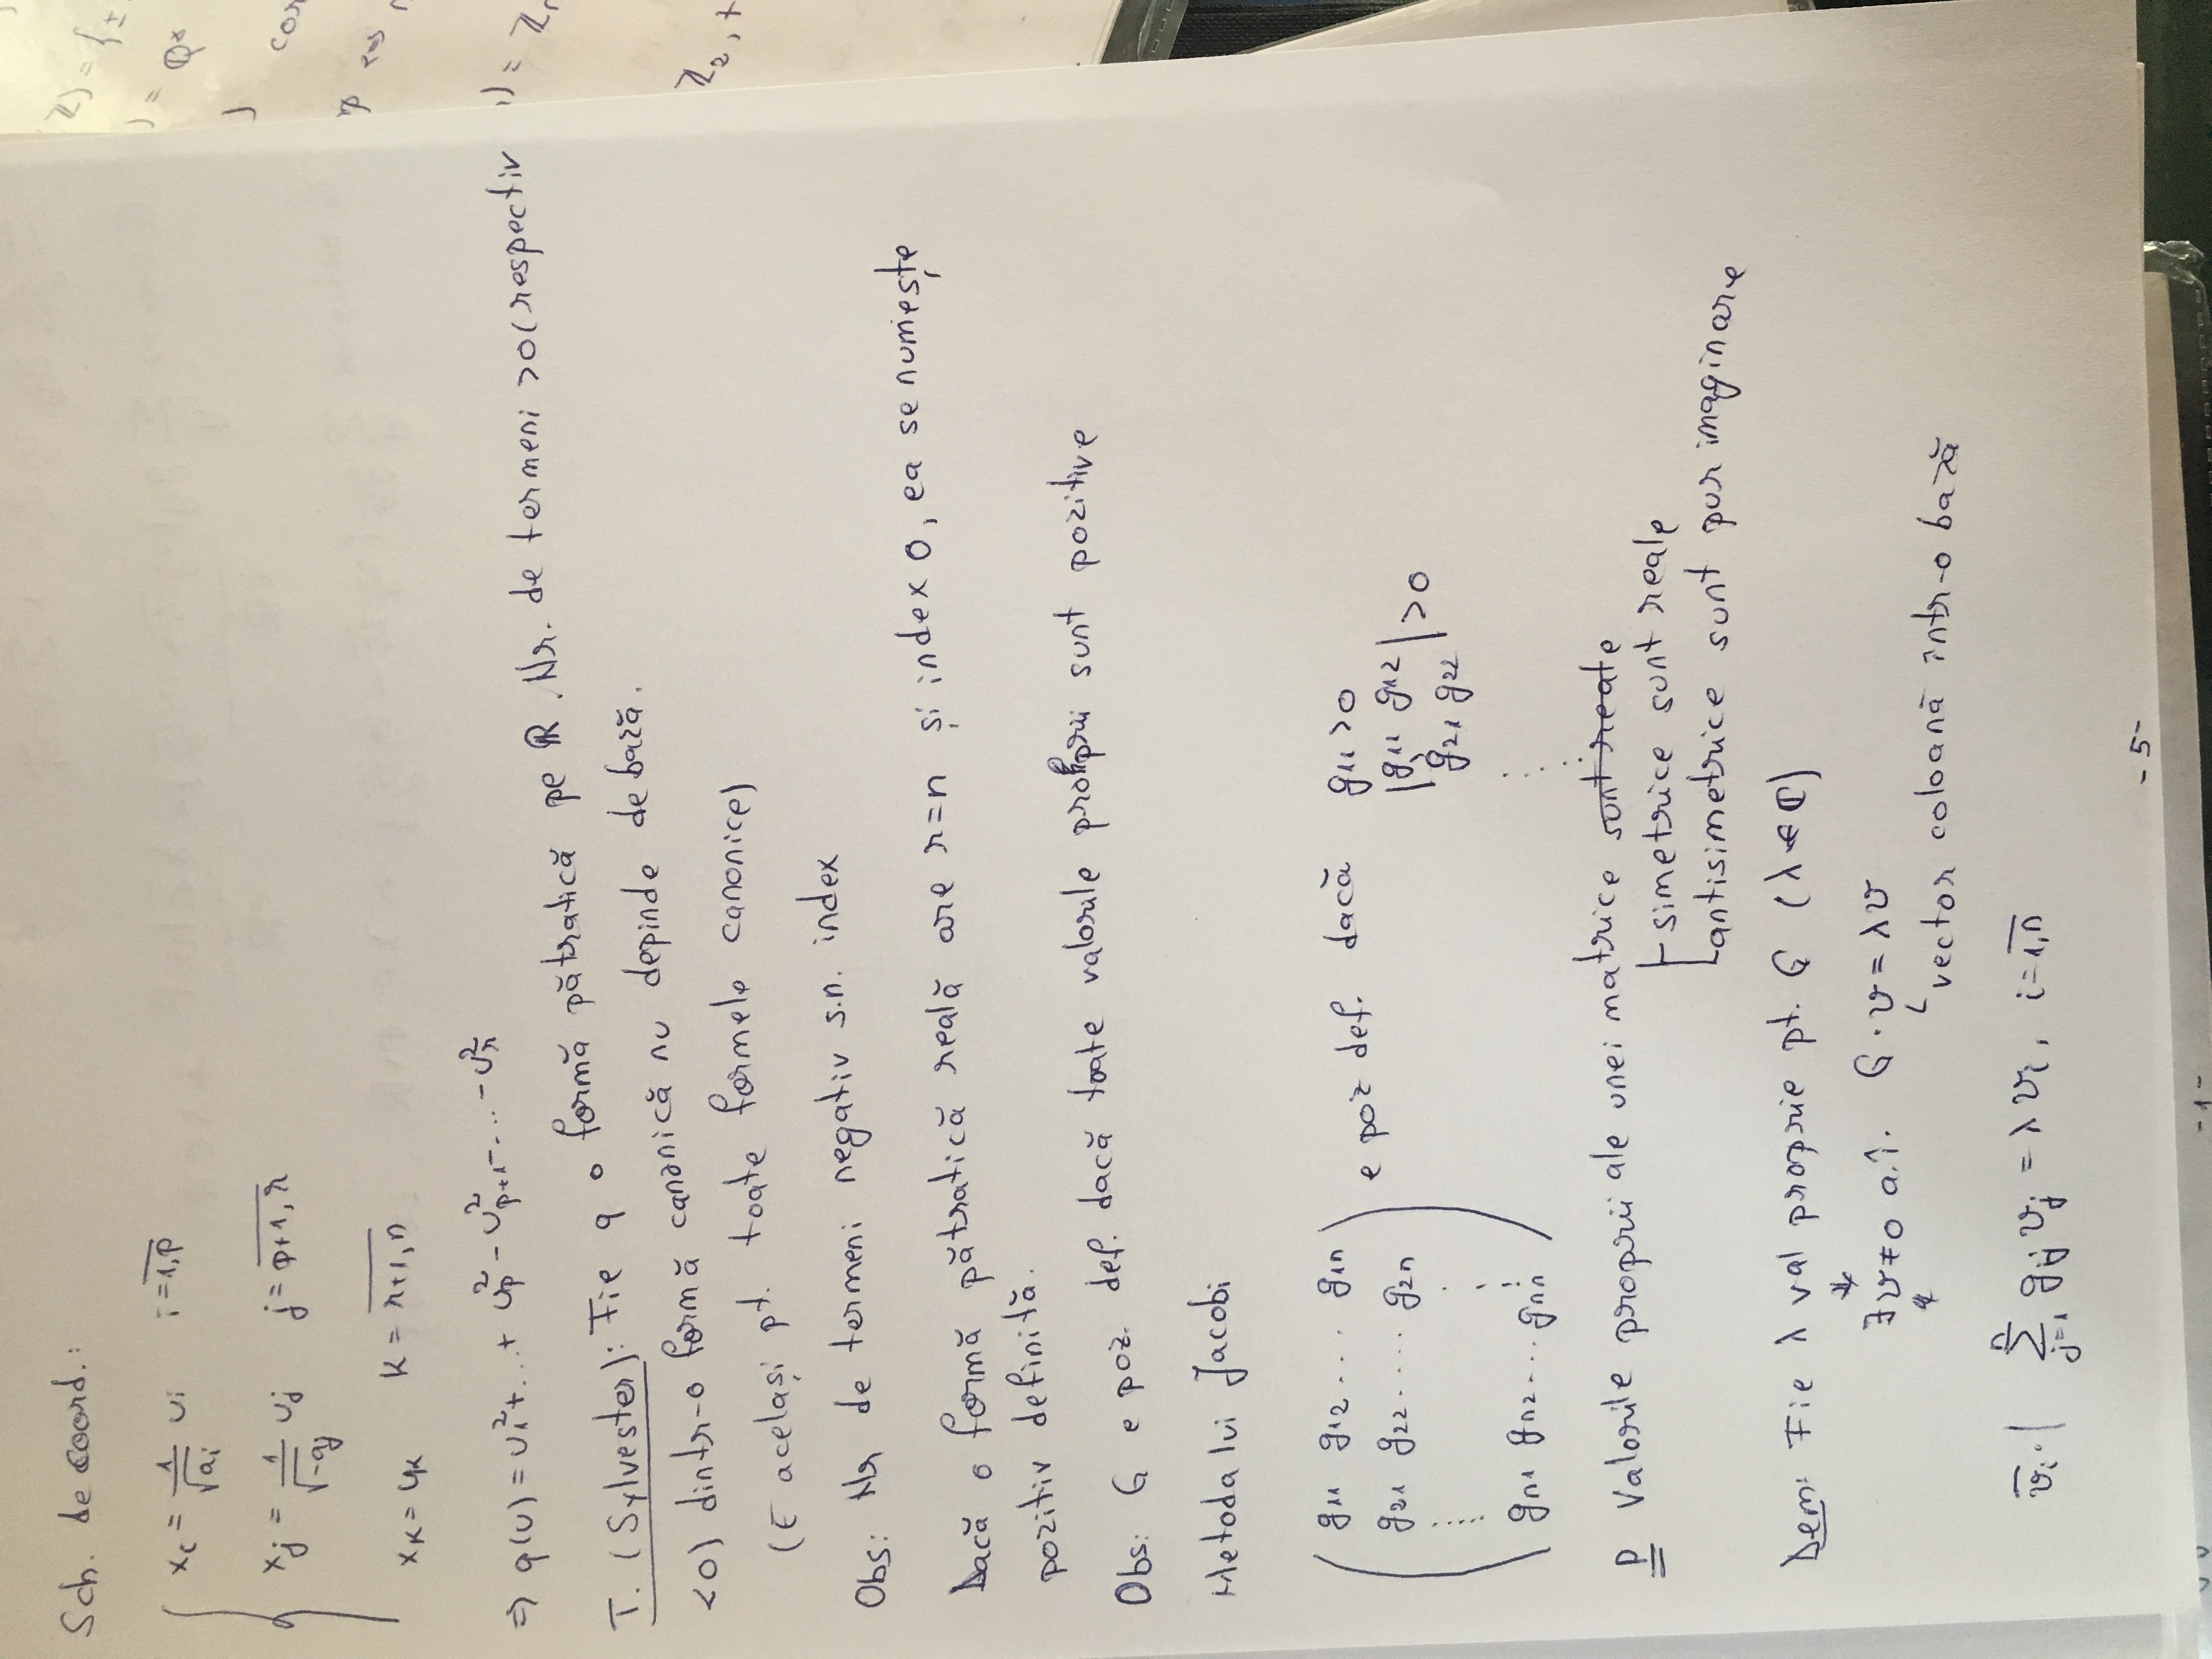 Sch. de coord.:
x_i = 1/√a_i u_i   i = \overline{1,p}
x_j = 1/√-a_j u_j   j = \overline{p+1,r}
x_k = u_k   k = \overline{r+1,n}
⇒ q(u) = u_1^2 + ... + u_p^2 - u_{p+1}^2 - ... - u_r^2
T. (Sylvester): Fie q o formă pătratică pe ℝ. Nr. de termeni >0 (respectiv
<0) dintr-o formă canonică nu depinde de bază.
(E același pt. toate formele canonice)
Obs: Nr de termeni negativ s.n. index
Dacă o formă pătratică reală are r=n și index 0, ea se numește
pozitiv definită.
Obs: G e poz. def. dacă toate valorile proprii sunt pozitive
Metoda lui Jacobi
g11 g12 ... g1n
g21 g22 .... g2n
gn1 gn2 ... gnn
e poz def. dacă g11 > 0
|g11 g12
g21 g22| > 0
P Valorile proprii ale unei matrice sunt reale
simetrice sunt reale
antisimetrice sunt pur imaginare
Dem: Fie λ val proprie pt. G (λ ∈ ℂ)
∃ v ≠ 0 a.î. G · v = λv
vector coloană într-o bază
\overline{v}_i · | \sum_{j=1}^{n} g_{ij} v_j = λ v_i, i = \overline{1,n}
- 5 -
- 1 -